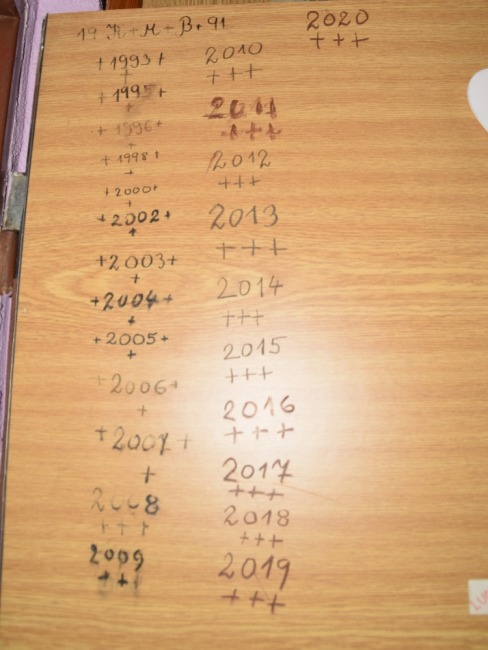 19 K + M + B + 91
+1993+
+
+1995+
+
+1996+
+
+1998+
+
+2000+
+
+2002+
+
+2003+
+
+2004+
+
+2005+
+
+2006+
+
+2007+
+
2008
+++
2009
+++
2010
+++
2011
+++
2012
+++
2013
+++
2014
+++
2015
+++
2016
+++
2017
+++
2018
+++
2019
+++
2020
+++